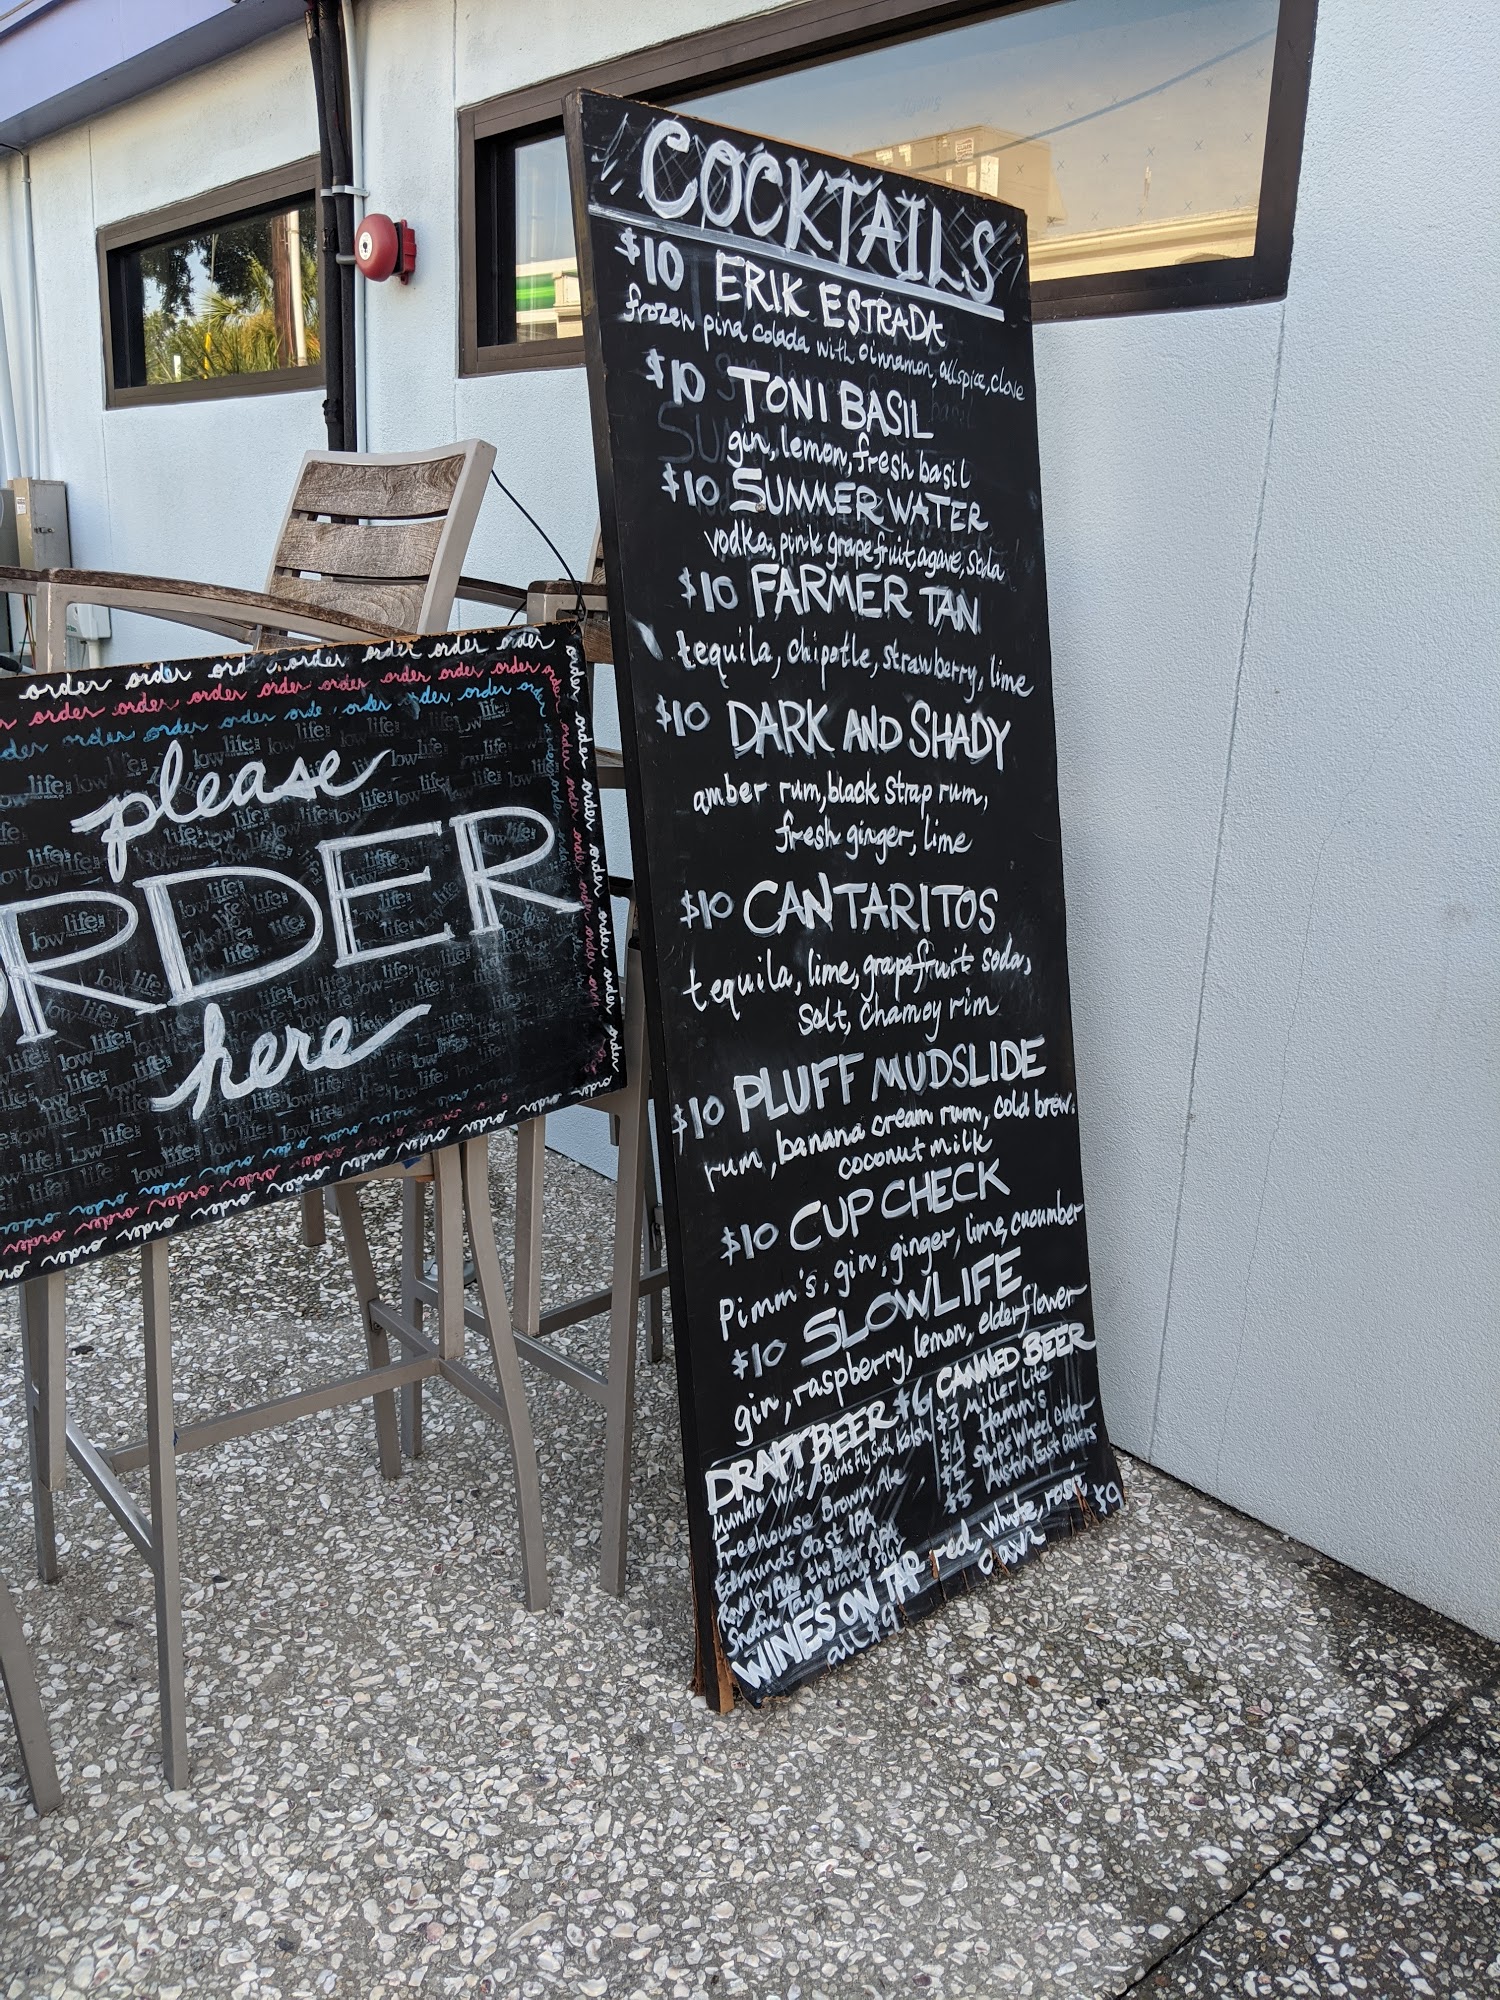 COCKTAILS
$10 ERIK ESTRADA
frozen pina colada with cinnamon, allspice, clove
$10 TONI BASIL
gin, lemon, fresh basil
$10 SUMMER WATER
vodka, pink grapefruit, agave, soda
$10 FARMER TAN
tequila, chipotle, strawberry, lime
$10 DARK AND SHADY
amber rum, black strap rum,
fresh ginger, lime
$10 CANTARITOS
tequila, lime, grapefruit soda,
salt, chamoy rim
$10 PLUFF MUDSLIDE
rum, banana cream rum, cold brew.
coconut milk
$10 CUP CHECK
Pimm's, gin, ginger, lime, cucumber
$10 SLOWLIFE
gin, raspberry, lemon, elderflower
DRAFT BEER $6
Munkle Wit / Birds Fly South Kolsh
Freehouse Brown Ale
Edmund's Oast IPA
the Bear APA
Tang orange sour
CANNED BEER
$3 Miller Lite
$4 Hamm's
$5 Ships Wheel Cider
$5 Austin East Ciders
WINES ON TAP red, white, rosé $9
all $9 cava
order order ord order order order order
order order order order order order order
order order order order order order
please
RDER
here
low life
order order order order order order order